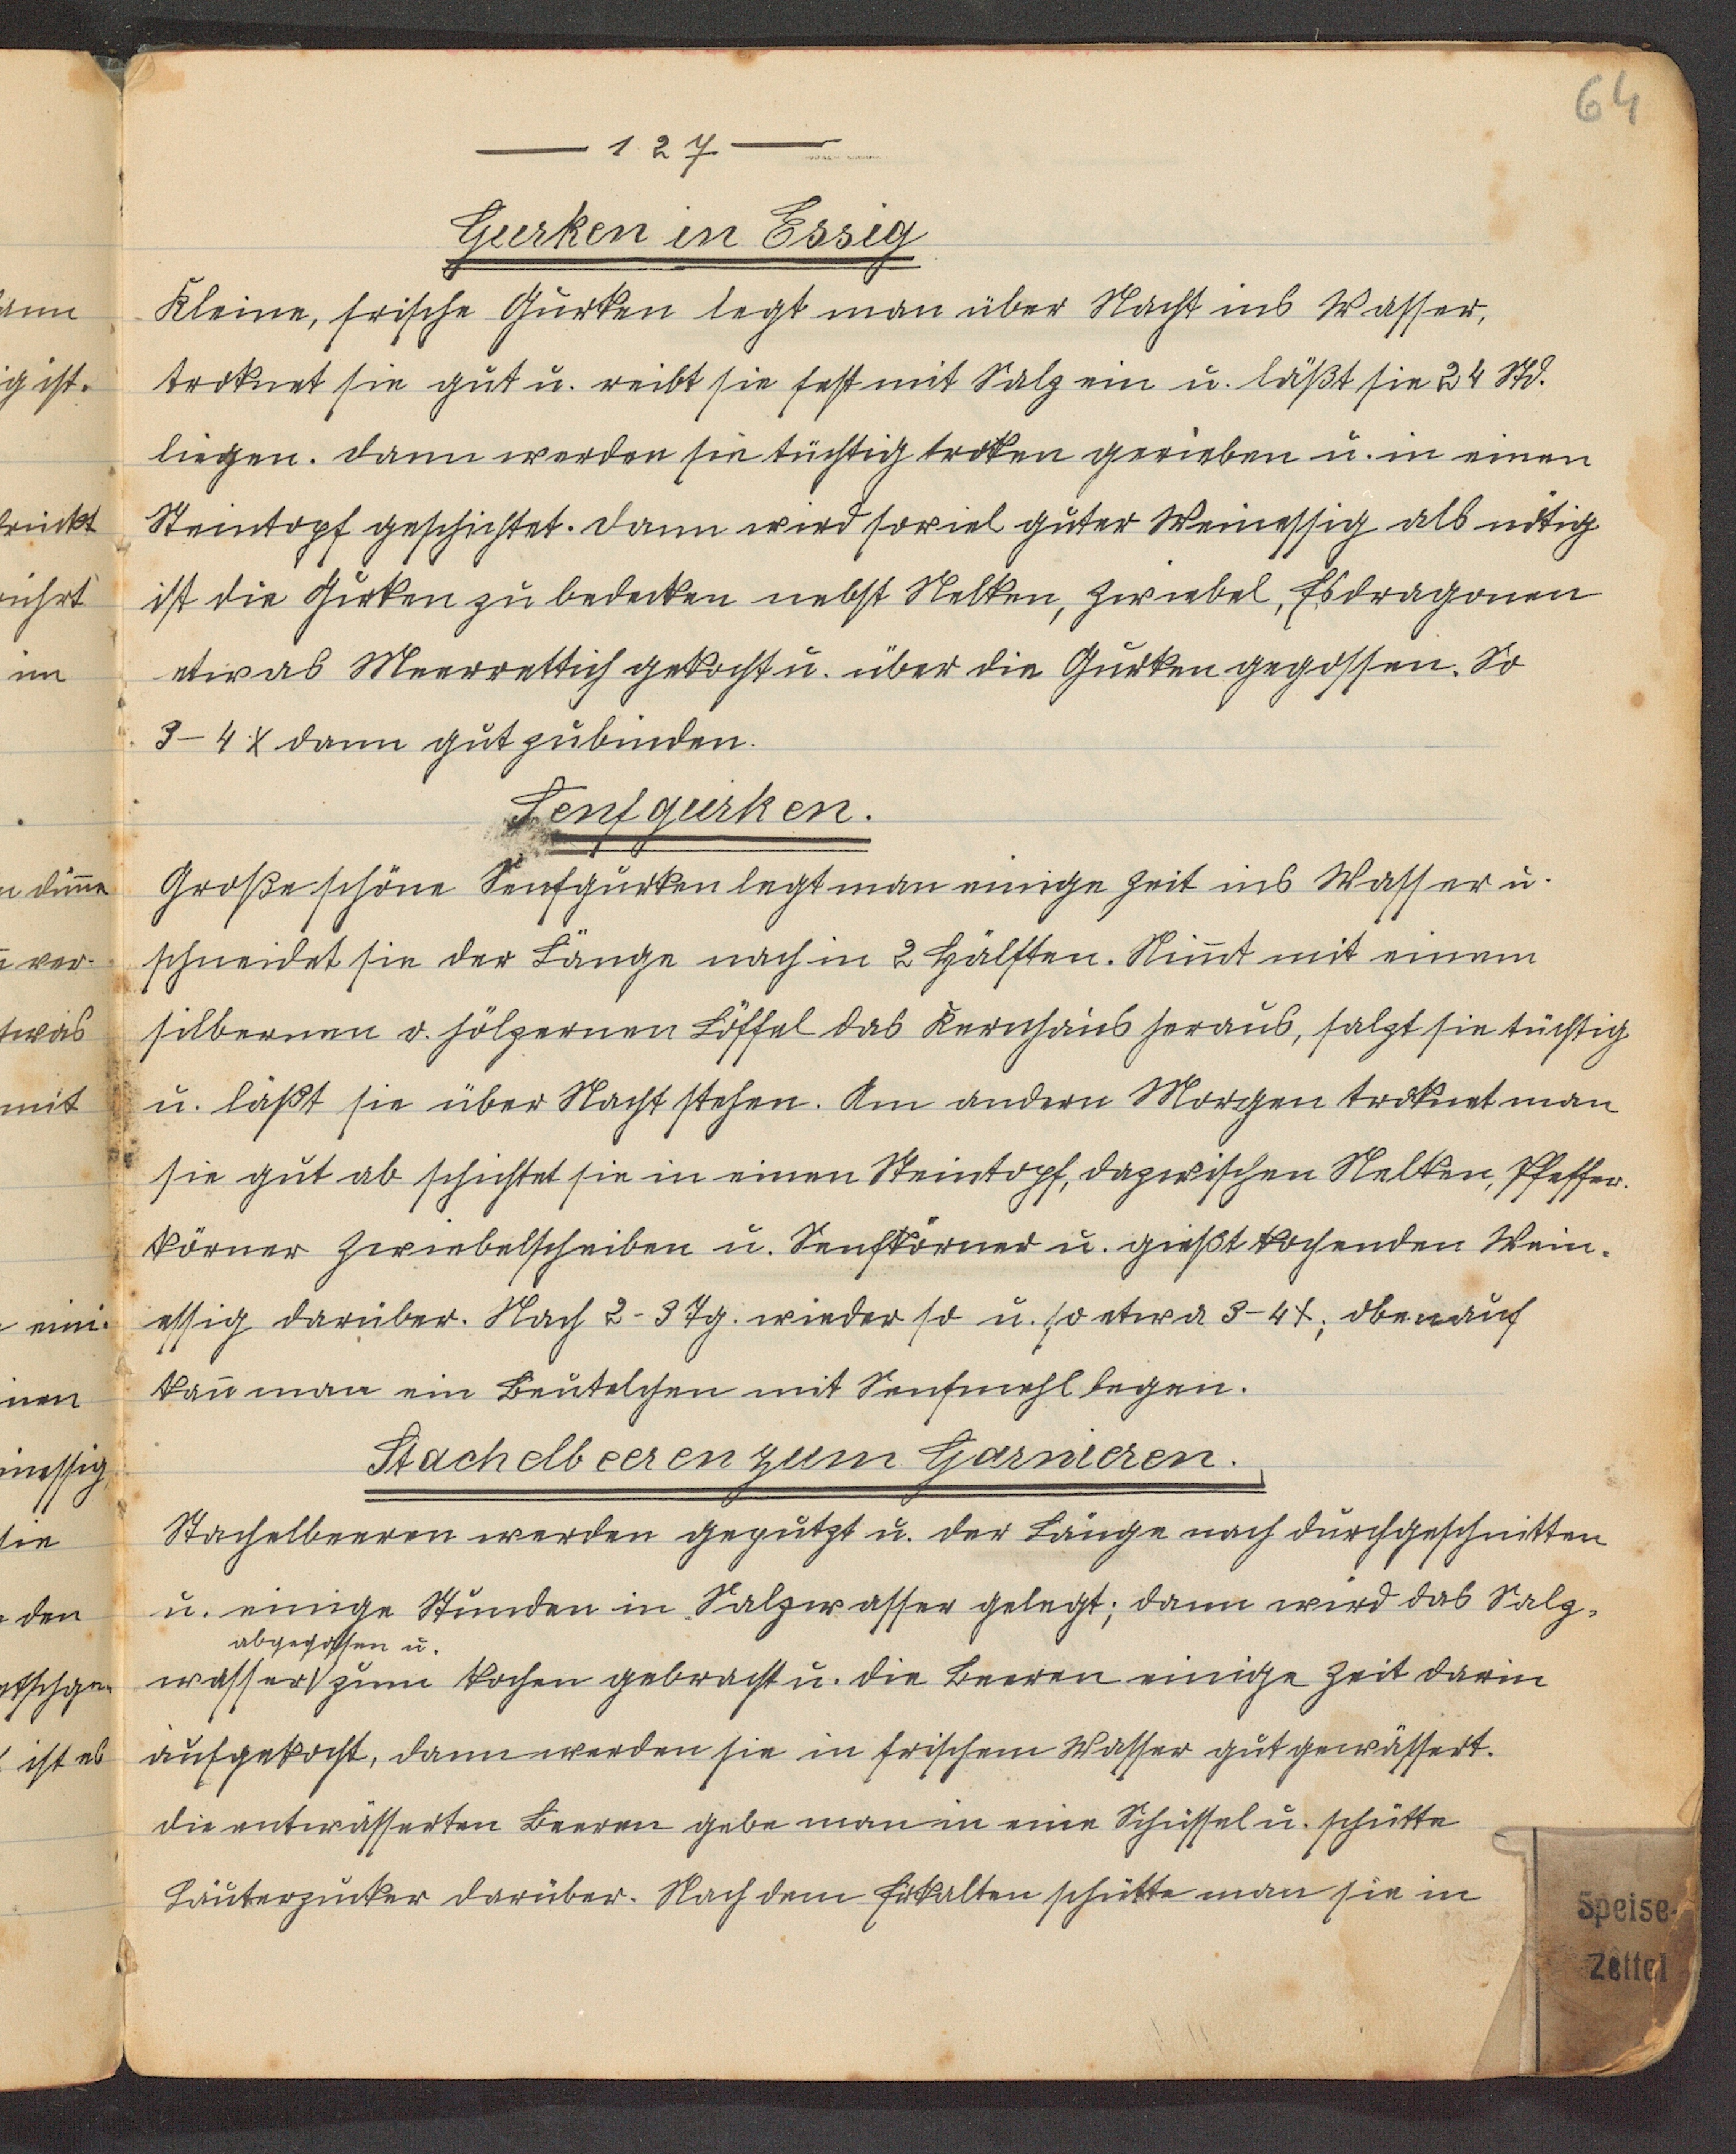 64
— 127 —
Gurken in Essig
Kleine, frische Gurken legt man über Nacht ins Wasser,
troknet sie gut u. reibt sie fest mit Salz ein u. läßt sie 24 Std.
liegen. Dann werden sie tüchtig troken gerieben u. in einen
Steintopf geschichtet. Dann wird soviel guter Weinessig als nötig
ist die Gurken zu bedecken nebst Nelken, Zwiebel, Esdragonen
etwas Meerrettich gekocht u. über die Gurken gegossen. So
3-4 x dann gut zubinden.
Senfgurken.
Große schöne Senfgurken legt man einige Zeit ins Wasser u.
schneidet sie der Länge nach in 2 Hälften. Nim̄t mit einem
silbernen o. hölzernen Löffel das Kernhaus heraus, salzt sie tüchtig
u. läßt sie über Nacht stehen. Am andern Morgen troknet man
sie gut ab schichtet sie in einen Steintopf, dazwischen Nelken, Pfeffer-
körner Zwiebelscheiben u. Senfkörner u. gießt kochenden Wein-
essig darüber. Nach 2-3 Tg. wieder so u. so etwa 3-4 x; obenauf
kan̄ man ein Beutelchen mit Senfmehl legen.
Stachelbeeren zum Garnieren.
Stachelbeeren werden geputzt u. der Länge nach durchgeschnitten
u. einige Stunden in Salzwasser gelegt; dann wird das Salz-
abgegossen u.
wasser zum Kochen gebracht u. die Beeren einige Zeit darin
aufgekocht, dann werden sie in frischem Wasser gut gewässert.
Die entwässerten Beeren gebe man in eine Schüssel u. schütte
Läuterzucker darüber. Nach dem Erkalten schütte man sie in
Speise-
Zettel
ig ist.
drückt
rührt
im
dün̄e
ver-
etwas
mit
eini-
inen
sie
den
ist es